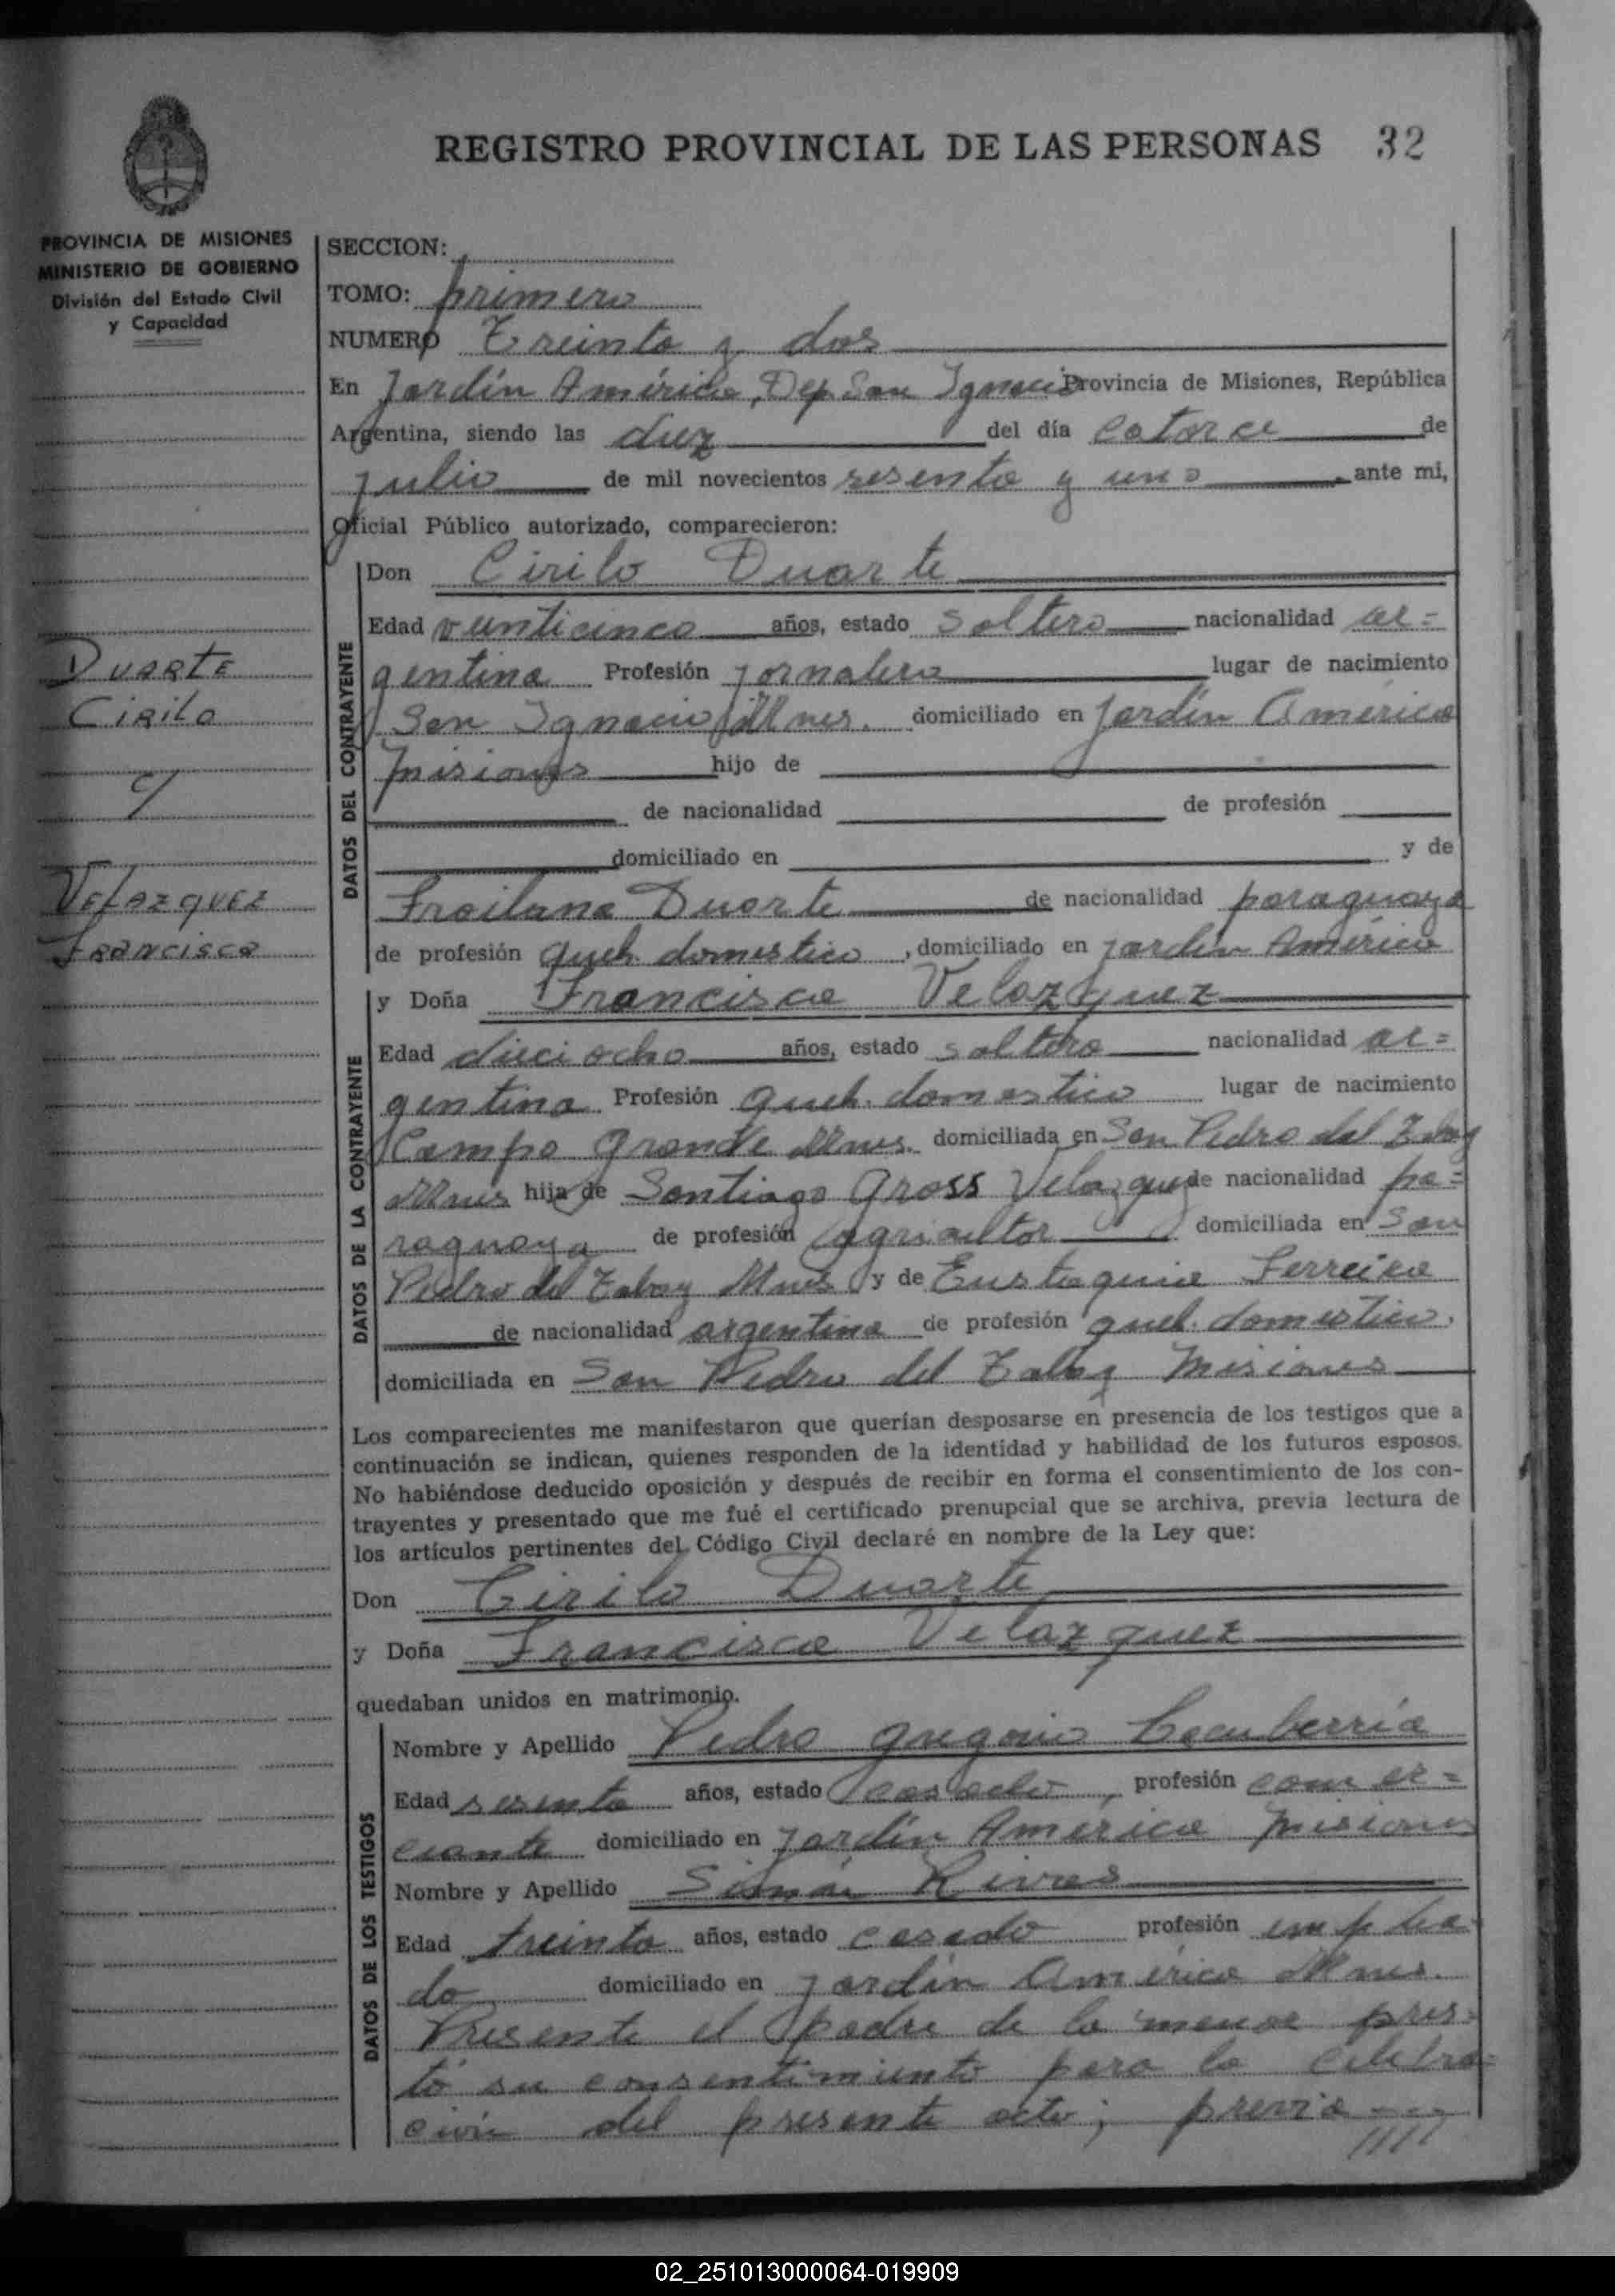 REGISTRO PROVINCIAL DE LAS PERSONAS 32
PROVINCIA DE MISIONES
MINISTERIO DE GOBIERNO
División del Estado Civil
y Capacidad
DUARTE
CIRILO
c/
VELAZQUEZ
FRANCISCA
SECCION:
TOMO: primero
NUMERO Treinta y dos
En Jardín América, Dep. San Ignacio Provincia de Misiones, República
Argentina, siendo las diez del día catorce de
julio de mil novecientos sesenta y uno ante mi,
Oficial Público autorizado, comparecieron:
DATOS DEL CONTRAYENTE
Don Cirilo Duarte
Edad veinticinco años, estado soltero nacionalidad ar=
gentina Profesión jornalero lugar de nacimiento
San Ignacio Mnes. domiciliado en Jardín América
Misiones hijo de
de nacionalidad de profesión
domiciliado en y de
Froilana Duarte de nacionalidad paraguaya
de profesión queh. domestico, domiciliado en Jardín América
DATOS DE LA CONTRAYENTE
y Doña Francisca Velazquez
Edad dieciocho años, estado soltera nacionalidad ar=
gentina Profesión queh. domestico lugar de nacimiento
Campo Grande Mnes. domiciliada en San Pedro del Tabay
Mnes hija de Santiago Gross Velazquez de nacionalidad pa=
raguaya de profesión agricultor domiciliada en San
Pedro del Tabay Mnes y de Eustaquia Ferreira
de nacionalidad argentina de profesión queh. domestico.
domiciliada en San Pedro del Tabay Misiones
Los comparecientes me manifestaron que querían desposarse en presencia de los testigos que a
continuación se indican, quienes responden de la identidad y habilidad de los futuros esposos.
No habiéndose deducido oposición y después de recibir en forma el consentimiento de los con-
trayentes y presentado que me fué el certificado prenupcial que se archiva, previa lectura de
los artículos pertinentes del Código Civil declaré en nombre de la Ley que:
Don Cirilo Duarte
y Doña Francisca Velazquez
quedaban unidos en matrimonio.
DATOS DE LOS TESTIGOS
Nombre y Apellido Pedro Gregorio
Edad sesenta años, estado casado, profesión comer=
ciante domiciliado en Jardín América Misiones
Nombre y Apellido Simón Rivres
Edad treinta años, estado casado profesión emplea
do domiciliado en Jardín América Mnes.
Presente el padre de la menor pres=
tó su consentimiento para la celebra=
ción del presente acto; previa
////
02_251013000064-019909